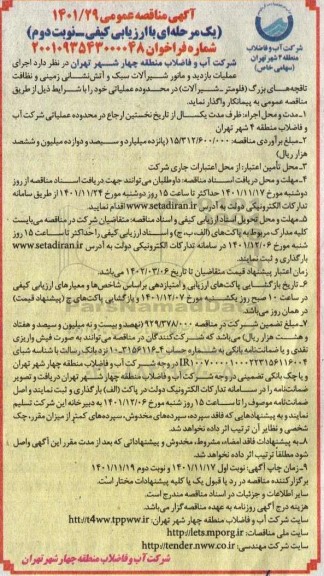 آگهی مناقصه عمومی ۱۴۰۱/۲۹
(یک مرحله‌ای با ارزیابی کیفی_نوبت دوم)
شماره فراخوان ۲۰۰۱۰۹۳۵۴۳۰۰۰۰۴۸
شرکت آب و فاضلاب
منطقه ۴ شهر تهران
(سهامی خاص)
شرکت آب و فاضلاب منطقه چهار شهر تهران در نظر دارد اجرای
عملیات بازدید و مانور شیرآلات سبک و آتش‌نشانی زمینی و نظافت
تاقچه‌های بزرگ (فلومتر_شیرآلات) در محدوده عملیاتی خود را با شرایط ذیل از طریق
مناقصه عمومی به پیمانکار واگذار نماید.
۱_مدت و محل اجراء: ظرف مدت یکسال از تاریخ نخستین ارجاع در محدوده عملیاتی شرکت آب
و فاضلاب منطقه ۴ شهر تهران
۲_مبلغ برآوردی مناقصه: ۱۵/۳۱۲/۶۰۰/۰۰۰ (پانزده میلیارد و سیصد و دوازده میلیون و ششصد
هزار ریال)
۳_محل تأمین اعتبار: از محل اعتبارات جاری شرکت
۴_مهلت و محل دریافت اسناد مناقصه: داوطلبان می‌توانند جهت دریافت اسناد مناقصه از روز
دوشنبه مورخ ۱۴۰۱/۱۱/۱۷ حداکثر تا ساعت ۱۵ روز دوشنبه مورخ ۱۴۰۱/۱۱/۲۴ از طریق سامانه
تدارکات الکترونیکی دولت به آدرس www.setadiran.ir اقدام نمایند.
۵_مهلت و محل تحویل اسناد ارزیابی کیفی و اسناد مناقصه: متقاضیان شرکت در مناقصه می‌بایست
کلیه مدارک مربوط به پاکت‌های (الف، ب، ج) و اسناد ارزیابی کیفی را حداکثر تا ساعت ۱۵ روز
شنبه مورخ ۱۴۰۱/۱۲/۰۶ در سامانه تدارکات الکترونیکی دولت به آدرس www.setadiran.ir
بارگذاری و ثبت نمایند.
زمان اعتبار پیشنهاد قیمت متقاضیان تا تاریخ ۱۴۰۲/۰۳/۰۶ می‌باشد.
۶_تاریخ بازگشایی پاکت‌های ارزیابی و امتیازدهی براساس شاخص‌ها و معیارهای ارزیابی کیفی
در ساعت ۱۰ صبح روز یکشنبه مورخ ۱۴۰۱/۱۲/۰۷ و بازگشایی پاکت‌های ج (پیشنهاد قیمت)
در همان روز می‌باشد.
۷_مبلغ تضمین شرکت در مناقصه ۹۲۹/۳۷۸/۰۰۰ (نهصد و بیست و نه میلیون و سیصد و هفتاد
و هشت هزار ریال) می‌باشد که شرکت‌کنندگان در مناقصه می‌توانند به صورت فیش واریزی
نقدی و یا ضمانتنامه بانکی به شماره حساب
نزد بانک رسالت با شناسه شبای
در وجه شرکت آب و فاضلاب منطقه چهار شهر تهران
و یا چک بانکی تضمینی در وجه شرکت آب و فاضلاب منطقه چهار شهر تهران دریافت و تصویر
ضمانتنامه را در سامانه تدارکات الکترونیک دولت در پاکت (الف) بارگذاری و ثبت نمایند و اصل
ضمانتنامه موصوف را تا ساعت ۱۵ روز شنبه مورخ ۱۴۰۱/۱۲/۰۶ به دبیرخانه این شرکت تسلیم
نمایند و به پیشنهادهایی که فاقد سپرده، سپرده‌های مخدوش، سپرده‌های کمتر از میزان مقرر، چک
شخصی و نظایر آن ترتیب اثر داده نخواهد شد.
۸_به پیشنهادات فاقد امضاء، مشروط، مخدوش و پیشنهاداتی که بعد از مدت مقرر این آگهی واصل
شود مطلقا ترتیب اثر داده نخواهد شد.
۹_زمان چاپ آگهی: نوبت اول ۱۴۰۱/۱۱/۱۷ و نوبت دوم ۱۴۰۱/۱۱/۱۹
برگزارکننده مناقصه در رد یا قبول یک یا کلیه پیشنهادات مختار است.
سایر اطلاعات و جزئیات در اسناد مناقصه مندرج است.
هزینه درج آگهی روزنامه به عهده مناقصه گزار می‌باشد.
سایت شرکت آب و فاضلاب منطقه چهار شهر تهران: htt://t4ww.tppww.ir
سایت ملی مناقصات: http://iets.mporg.ir
سایت شرکت مهندسی: http://tender.nww.co.ir
شرکت آب و فاضلاب منطقه چهار شهر تهران